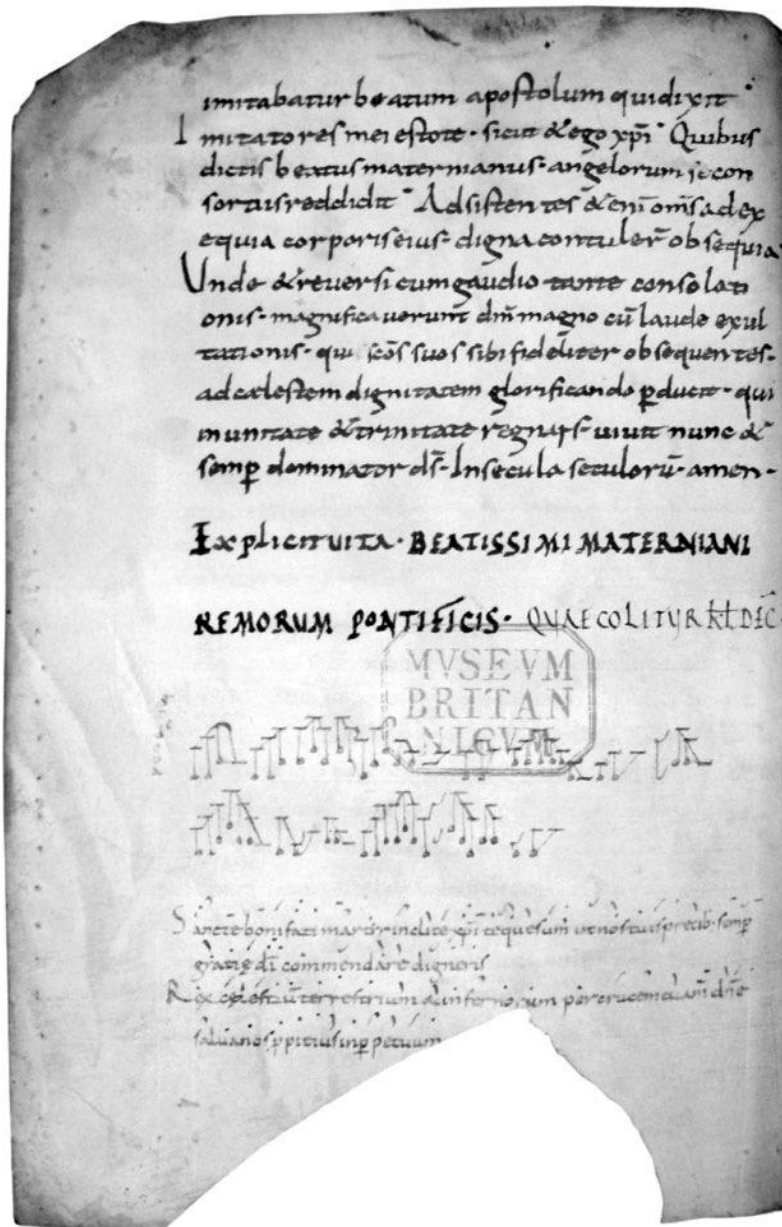 imitabatur beatum apostolum qui dixit·
Imitatores mei estote· sicut & ego xp̄i· Quibus
dictis beatus maternianus· angelorum se con
sortiis reddidit· Adsistentes & enī om̄s ad ex
equia corporis eius· digna contuler̄ obsequia·
Unde & reversi cum gaudio tante consolati
onis· magnificaverunt dn̄m magno cū laude exul
tationis· qui sc̄os suos sibi fideliter obsequentes·
ad cælestem dignitatem glorificando p̄ducit· qui
in unitate & trinitate regnans· vivit nunc &
semp̄ dominator d̄s· In secula seculorū· amen·
EXPLICIT VITA· BEATISSIMI MATERNIANI
REMORUM PONTIFICIS· QUAE COLITUR KL DEC·
MVSEVM
BRITAN
NICVM
Sancte bonifati martir inclite xp̄i te quesum ut nos tuis precib· semp̄
gratię dī commendare digneris
Rex celestiū terrestrium & infernorum per crucem tuam dn̄e
salva nos p̄pitius in p̄petuum